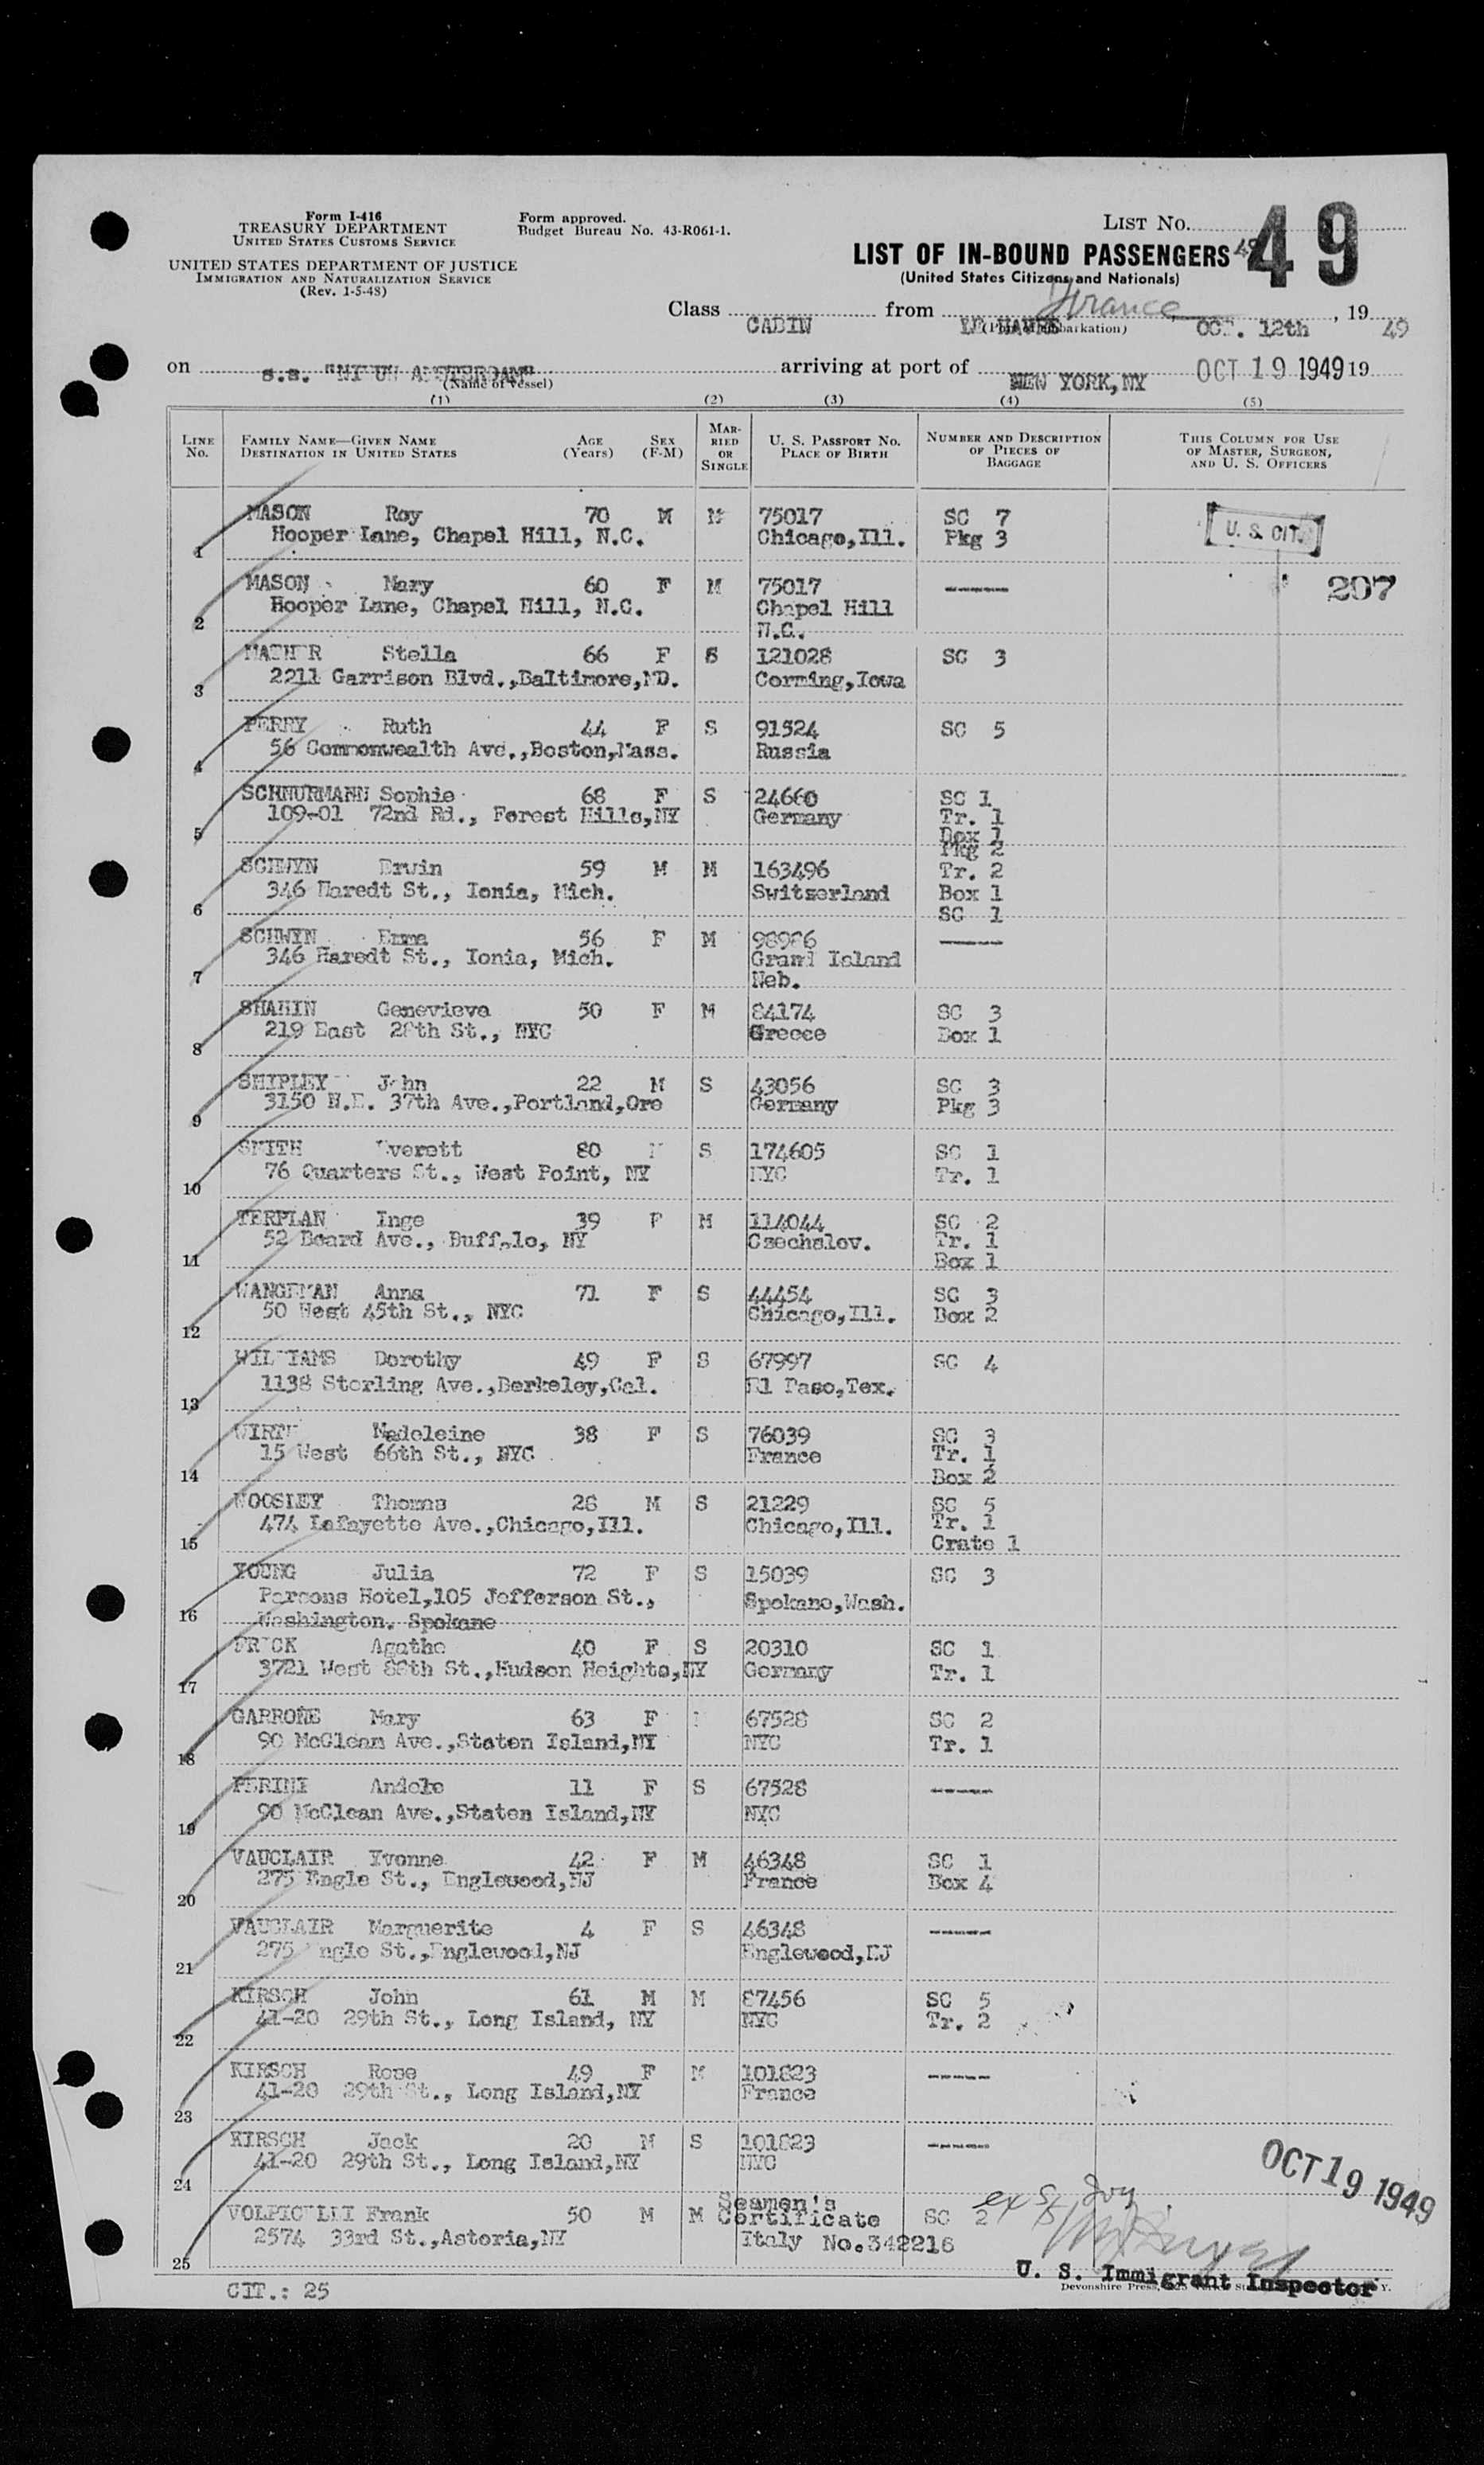 Form I-416
TREASURY DEPARTMENT
UNITED STATES CUSTOMS SERVICE
UNITED STATES DEPARTMENT OF JUSTICE
IMMIGRATION AND NATURALIZATION SERVICE
(Rev. 1-5-48)
Form approved.
Budget Bureau No. 43-R061-1.
LIST No. 49
LIST OF IN-BOUND PASSENGERS
(United States Citizens and Nationals)
Class CABIN from LE HAVRE France, OCT. 12th, 19 49
(Port of Embarkation)
on s.s. "NIEUW AMSTERDAM" arriving at port of NEW YORK, NY OCT 19 1949 19
(Name of Vessel)
(1) (2) (3) (4) (5)
LINE No. FAMILY NAME—GIVEN NAME DESTINATION IN UNITED STATES AGE (Years) SEX (F-M) MARRIED OR SINGLE U. S. PASSPORT NO. PLACE OF BIRTH NUMBER AND DESCRIPTION OF PIECES OF BAGGAGE THIS COLUMN FOR USE OF MASTER, SURGEON, AND U. S. OFFICERS
1 MASON Roy 70 M M 75017 SC 7 U. S. CIT.
Hooper Lane, Chapel Hill, N.C. Chicago, Ill. Pkg 3
2 MASON Mary 60 F M 75017 ---- 207
Hooper Lane, Chapel Hill, N.C. Chapel Hill
N.C.
3 MATHER Stella 66 F S 121028 SC 3
2211 Garrison Blvd., Baltimore, MD. Corning, Iowa
4 PERRY Ruth 44 F S 91524 SC 5
56 Commonwealth Ave., Boston, Mass. Russia
5 SCHNURMANN Sophie 68 F S 24660 SC 1
109-01 72nd Rd., Forest Hills, NY Germany Tr. 1
Box 1
Pkg 2
6 SCHWYN Erwin 59 M M 163496 Tr. 2
346 Haredt St., Ionia, Mich. Switzerland Box 1
SC 1
7 SCHWYN Emma 56 F M 98986 ----
346 Haredt St., Ionia, Mich. Grand Island
Neb.
8 SHAHIN Genevieve 50 F M 84174 SC 3
219 East 28th St., NYC Greece Box 1
9 SHIPLEY John 22 M S 43056 SC 3
3150 N.E. 37th Ave., Portland, Ore Germany Pkg 3
10 SMITH Everett 80 M S 174605 SC 1
76 Quarters St., West Point, NY NYC Tr. 1
11 TERPLAN Inge 39 F M 114044 SC 2
52 Beard Ave., Buffalo, NY Czechslov. Tr. 1
Box 1
12 WANGEMAN Anna 71 F S 44454 SC 3
50 West 45th St., NYC Chicago, Ill. Box 2
13 WILLIAMS Dorothy 49 F S 67997 SC 4
1138 Sterling Ave., Berkeley, Cal. El Paso, Tex.
14 WIRTH Madeleine 38 F S 76039 SC 3
15 West 66th St., NYC France Tr. 1
Box 2
15 WOOSLEY Thomas 28 M S 21229 SC 5
474 LaFayette Ave., Chicago, Ill. Chicago, Ill. Tr. 1
Crate 1
16 YOUNG Julia 72 F S 15039 SC 3
Parsons Hotel, 105 Jefferson St., Spokane, Wash.
Washington. Spokane
17 FRICK Agathe 40 F S 20310 SC 1
3721 West 88th St., Hudson Heights, NY Germany Tr. 1
18 GARRONE Mary 63 F 67528 SC 2
90 McClean Ave., Staten Island, NY NYC Tr. 1
19 PERINI Andele 11 F S 67528 ----
90 McClean Ave., Staten Island, NY NYC
20 VAUCLAIR Yvonne 42 F M 46348 SC 1
275 Engle St., Englewood, NJ France Box 4
21 VAUCLAIR Marguerite 4 F S 46348 ----
275 Engle St., Englewood, NJ Englewood, NJ
22 KIRSCH John 61 M M 87456 SC 5
41-20 29th St., Long Island, NY NYC Tr. 2
23 KIRSCH Rose 49 F M 101823 ----
41-20 29th St., Long Island, NY France
24 KIRSCH Jack 20 M S 101823 ----
41-20 29th St., Long Island, NY NYC
OCT 19 1949
25 VOLPICELLI Frank 50 M M Seamen's Certificate SC 2
2574 33rd St., Astoria, NY Italy No. 342216
U. S. Immigrant Inspector
CIT.: 25
Devonshire Press